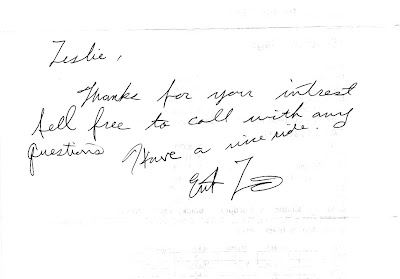 Leslie,
Thanks for your intrest
fell free to call with any
questions Have a nice ride.